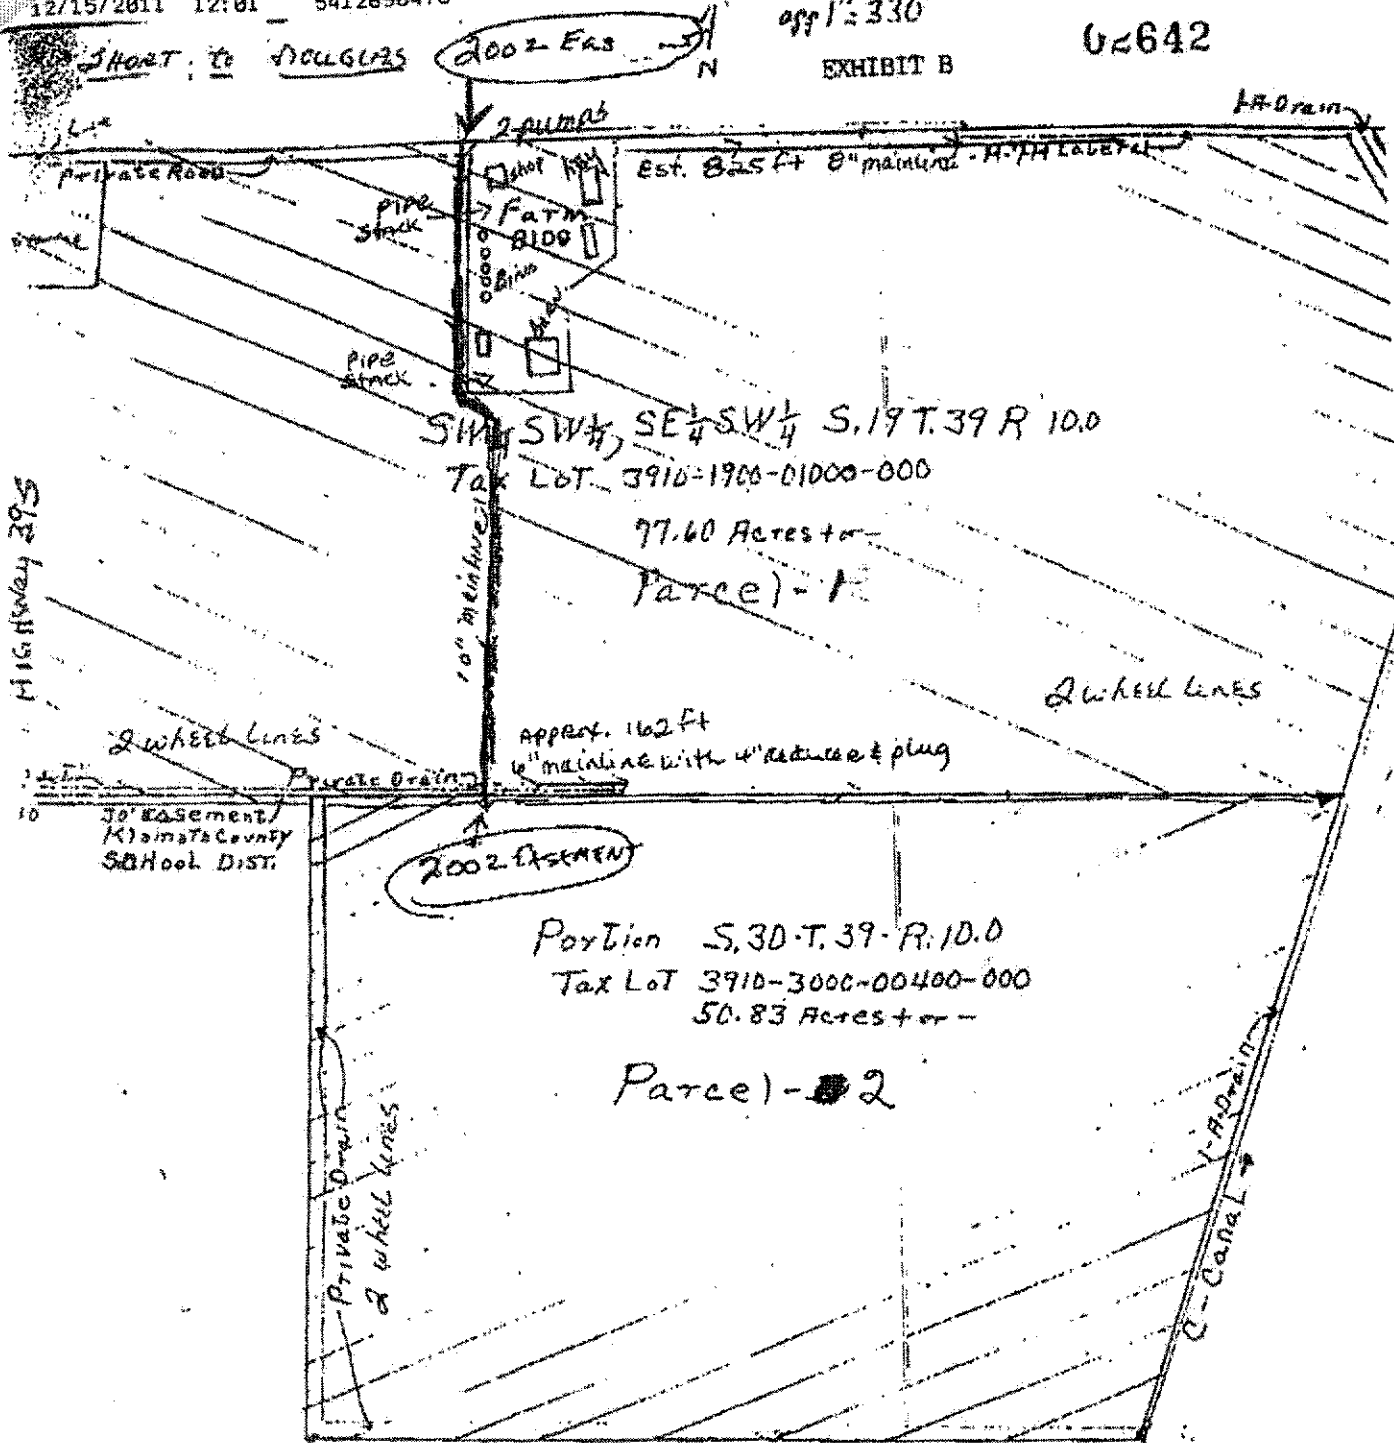 12/15/2011 12:01
SHORT to DOUGLAS
2002 Eas
N
app 1"=330
EXHIBIT B
02642
1-A-Drain
2 pumps
Private Road
Est. 825 ft 8" mainline
Lateral
Shop
Pipe
Stack
Farm
BlDG
Bins
Pipe
Stack
SW¼ SW¼, SE¼ SW¼ S.19 T.39 R 10.0
Tax LoT 3910-1900-01000-000
77.60 Acres + or -
Parcel - 1
HIGHWAY 39S
10" mainline
2 wheel lines
2 wheel lines
Approx. 162 ft
6" mainline with 4" reducer & plug
Private Drain
10
30' easement
Klamath County
SCHool DIST.
2002 EASEMENT
Portion S.30.T.39.R.10.0
Tax LoT 3910-3000-00400-000
50.83 Acres + or -
Parcel - 2
Private Drain
2 wheel lines
1-A-Drain
C-Canal